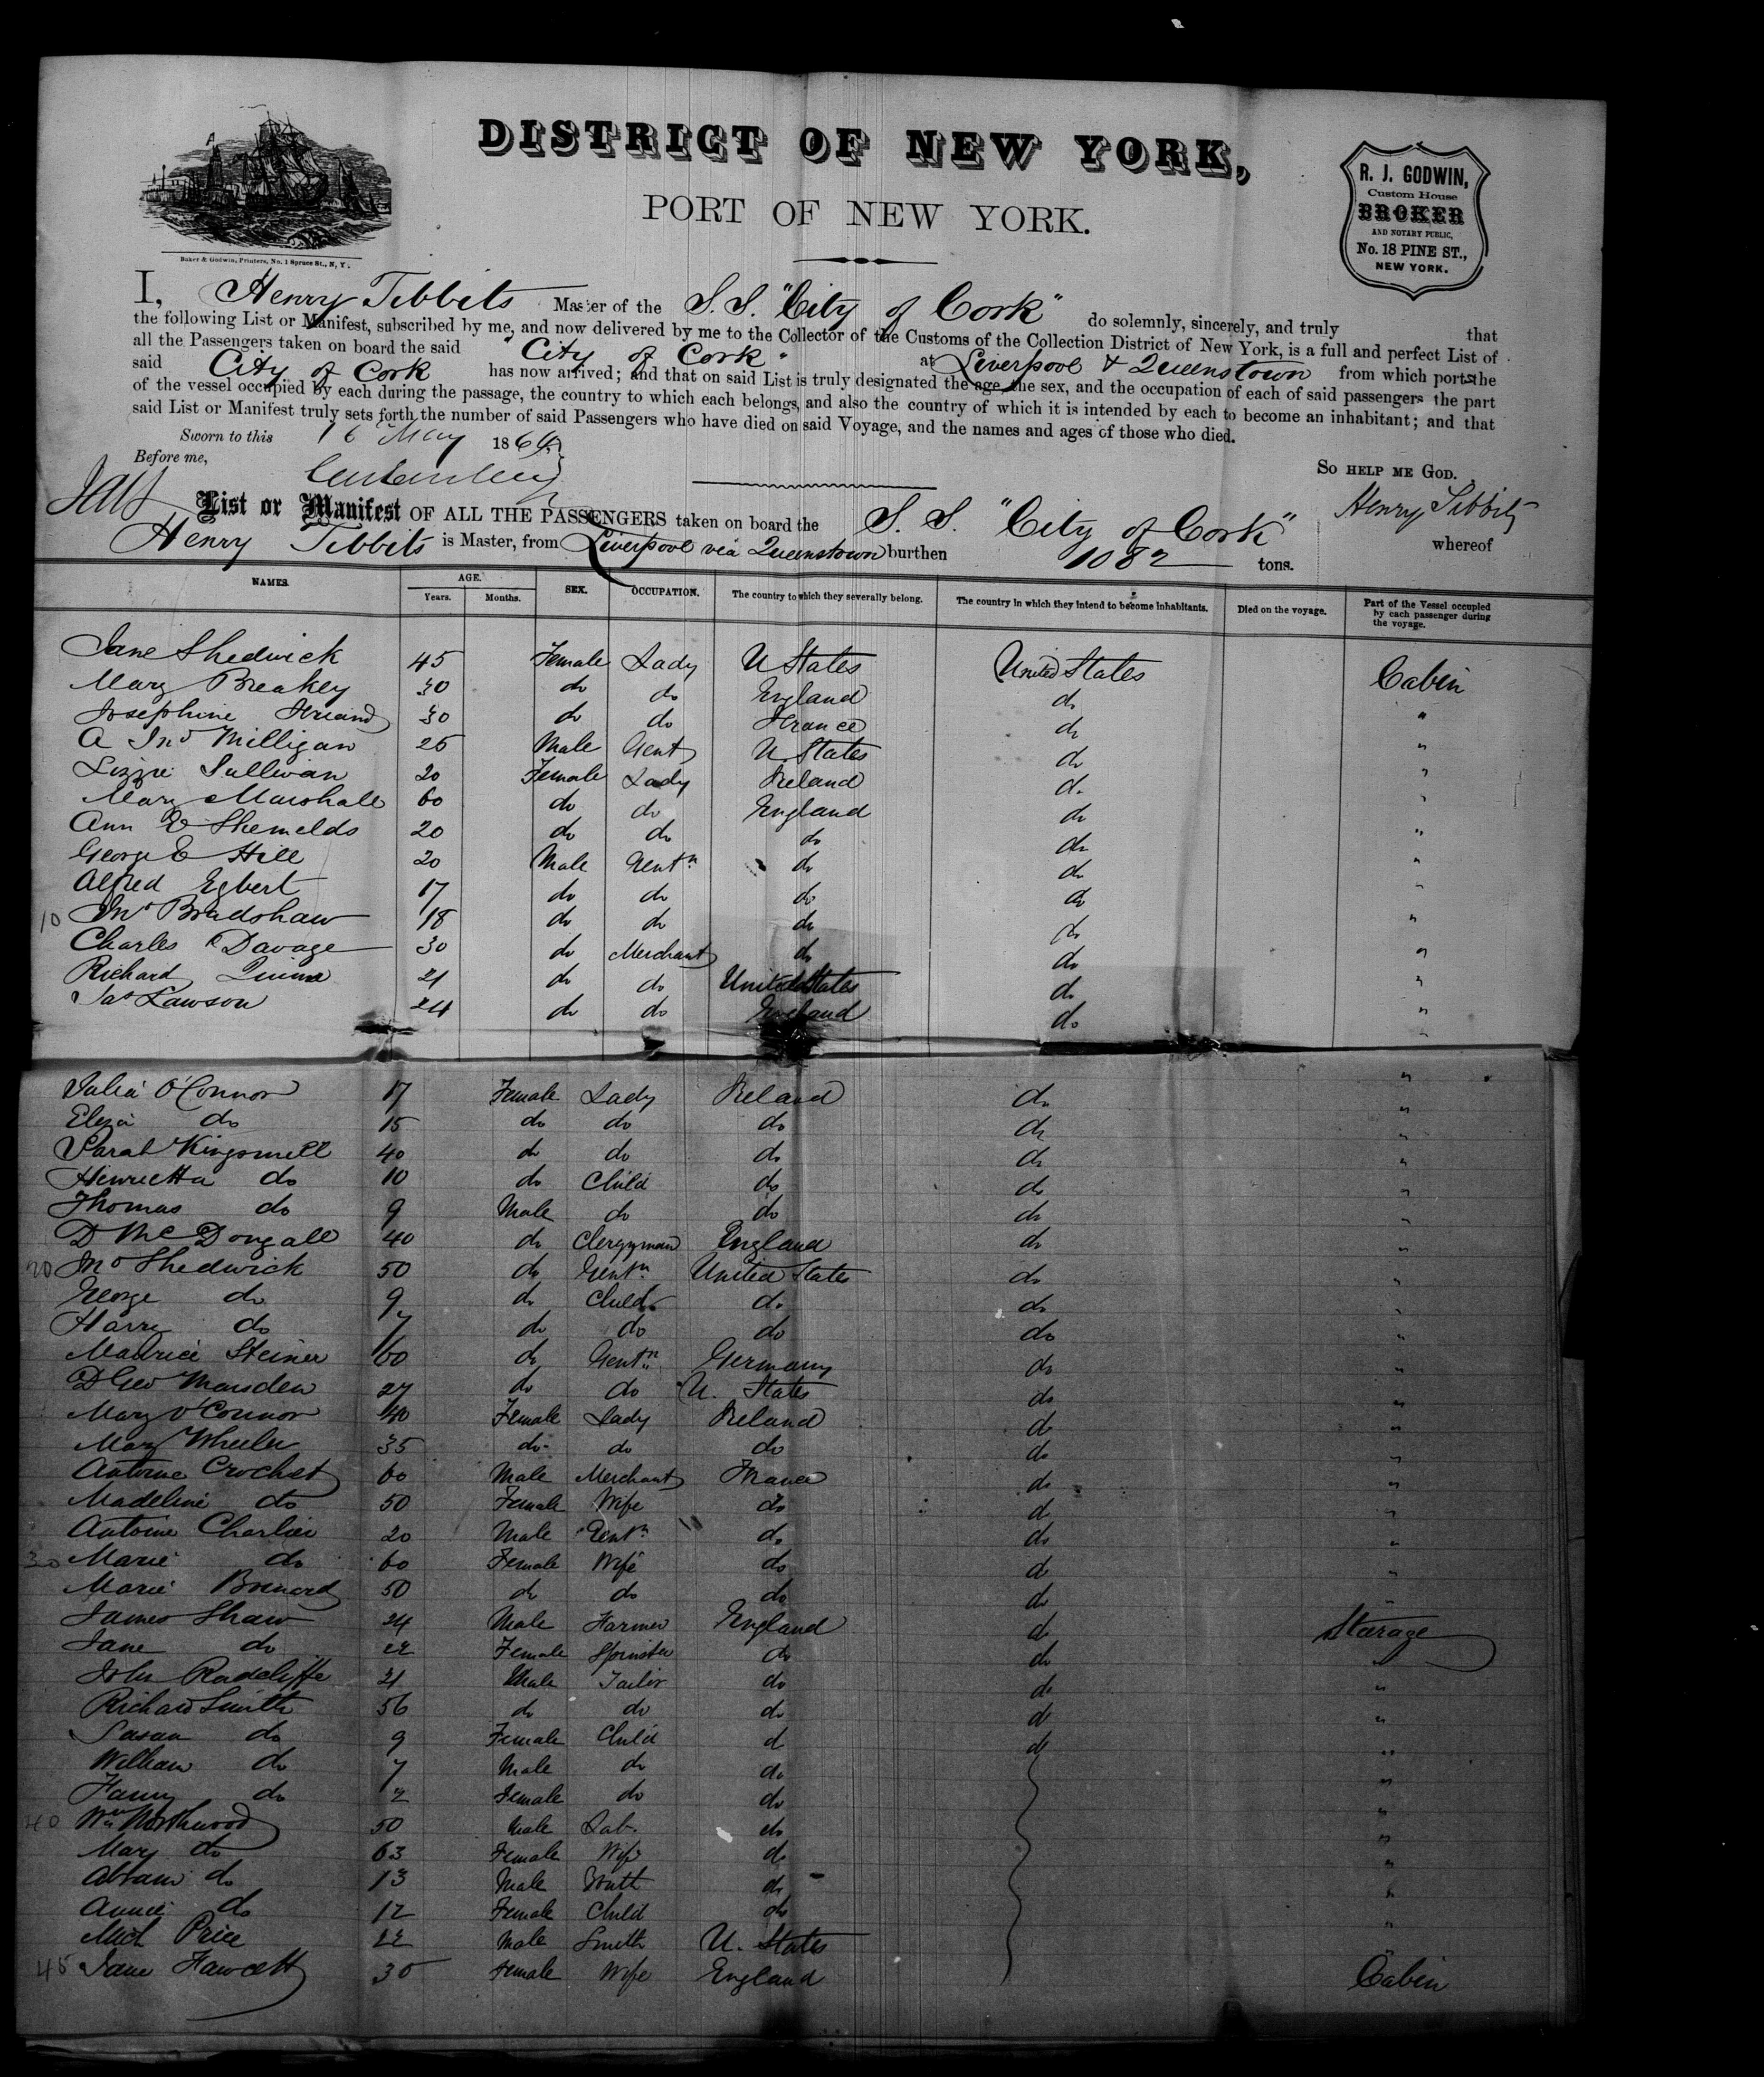 DISTRICT OF NEW YORK,
PORT OF NEW YORK.
Baker & Godwin, Printers, No. 1 Spruce St., N, Y.
R. J. GODWIN,
Custom House
BROKER
AND NOTARY PUBLIC,
No. 18 PINE ST.,
NEW YORK.
I, Henry Tibbits Master of the S.S. "City of Cork" do solemnly, sincerely, and truly that
the following List or Manifest, subscribed by me, and now delivered by me to the Collector of the Customs of the Collection District of New York, is a full and perfect List of
all the Passengers taken on board the said "City of Cork" at Liverpool & Queenstown from which ports the
said City of Cork has now arrived; and that on said List is truly designated the age, the sex, and the occupation of each of said passengers the part
of the vessel occupied by each during the passage, the country to which each belongs, and also the country of which it is intended by each to become an inhabitant; and that
said List or Manifest truly sets forth the number of said Passengers who have died on said Voyage, and the names and ages of those who died.
Sworn to this 16 May 1864
Before me,
So HELP ME GOD.
Henry Tibbits
List or Manifest OF ALL THE PASSENGERS taken on board the S. S. "City of Cork" whereof
Henry Tibbits is Master, from Liverpool via Queenstown burthen 1082 tons.
NAMES. AGE. Years. Months. SEX. OCCUPATION. The country to which they severally belong. The country in which they intend to become inhabitants. Died on the voyage. Part of the Vessel occupied by each passenger during the voyage.
Jane Shedwick 45 Female Lady U States United States Cabin
Mary Breakey 30 do do England do "
Josephine 30 do do France do "
A Jno Milligan 25 Male Gent U. States do "
Lizzie Sullivan 20 Female Lady Ireland do "
Mary Marshall 60 do do England do "
Ann E Shemelds 20 do do do do "
George E Hill 20 Male Gentn do do "
Alfred Egbert 17 do do do do "
10 Jno Bradshaw 18 do do do do "
Charles Davage 30 do Merchant do do "
Richard Quinn 21 do do United States do "
Jas Lawson 24 do do England do "
Julia O'Connor 17 Female Lady Ireland do "
Eliza do 15 do do do do "
Sarah Kingsmell 40 do do do do "
Henrietta do 10 do Child do do "
Thomas do 9 Male do do do "
D McDougall 40 do Clergyman England do "
20 Jno Shedwick 50 do Gentn United States do "
George do 9 do Child do do "
Harry do 7 do do do do "
Maurice Steiner 60 do Gentn Germany do "
D Geo Marsden 27 do do U. States do "
Mary O'Connor 40 Female Lady Ireland do "
Mary Wheeler 35 do do do do "
Antoine Crochet 60 Male Merchant France do "
Madeline do 50 Female Wife do do "
Antoine Charlier 20 Male Gentn do do "
30 Marie do 60 Female Wife do do "
Marie 50 do do do do "
James Shaw 24 Male Farmer England do Stearage
Jane do 22 Female Spinster do do "
John Radcliffe 21 Male Tailor do do "
Richard Smith 56 do do do do "
Susan do 9 Female Child d do "
William do 7 Male do do "
Fanny do 2 Female do do "
40 Wm Northwood 50 Male Lab. do "
Mary do 63 Female Wife do "
Abram do 13 Male do "
Annie do 12 Female Child do "
Mich Price 22 Male Smith U. States "
45 Jane Fawcett 30 Female Wife England Cabin